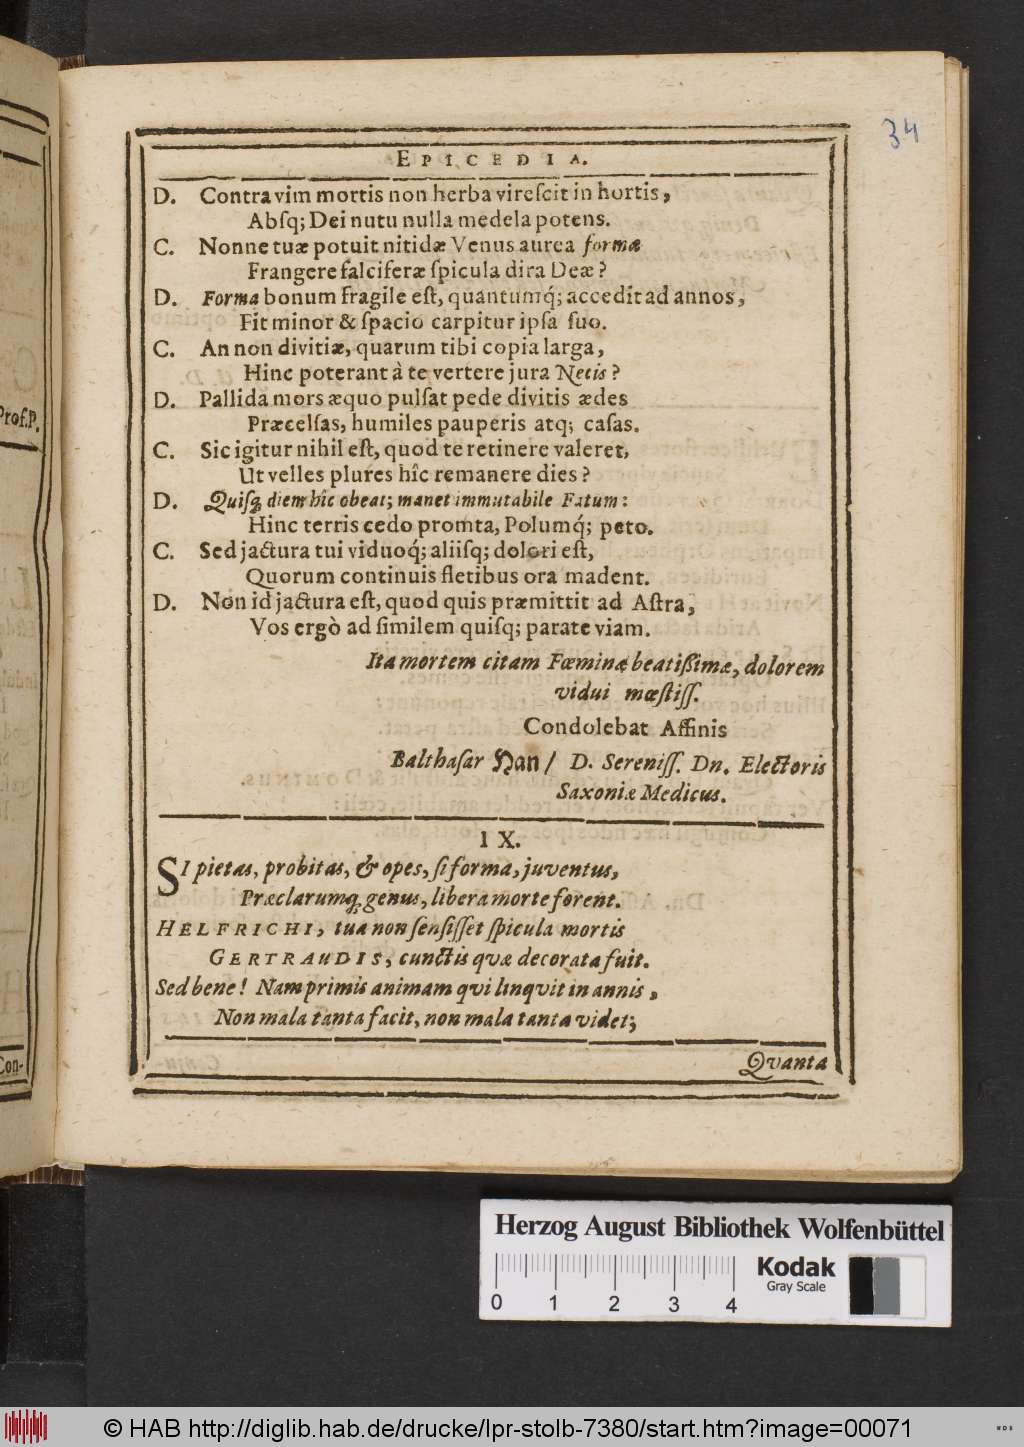 34
EPICEDIA.
D. Contra vim mortis non herba virescit in hortis,
Absq; Dei nutu nulla medela potens.
C. Nonne tuæ potuit nitidæ Venus aurea formæ
Frangere falciferæ spicula dira Deæ?
D. Forma bonum fragile est, quantumq́; accedit ad annos,
Fit minor & spacio carpitur ipsa suo.
C. An non divitiæ, quarum tibi copia larga,
Hinc poterant à te vertere jura Necis?
D. Pallida mors æquo pulsat pede divitis ædes
Præcelsas, humiles pauperis atq; casas.
C. Sic igitur nihil est, quod te retinere valeret,
Ut velles plures hîc remanere dies?
D. Quisq; diem hîc obeat; manet immutabile Fatum:
Hinc terris cedo promta, Polumq́; peto.
C. Sed jactura tui viduoq́; aliisq; dolori est,
Quorum continuis fletibus ora madent.
D. Non id jactura est, quod quis præmittit ad Astra,
Vos ergò ad similem quisq; parate viam.
Ita mortem citam Fœminæ beatißimæ, dolorem
vidui mœstiss.
Condolebat Affinis
Balthasar Han / D. Sereniss. Dn. Electoris
Saxoniæ Medicus.
IX.
SI pietas, probitas, & opes, si forma, juventus,
Præclarumq; genus, libera morte forent.
HELFRICHI, tua non sensisset spicula mortis
GERTRAUDIS, cunctis quæ decorata fuit.
Sed bene! Nam primis animam qui linqvit in annis,
Non mala tanta facit, non mala tanta videt;
Qvanta
Prof. P.
Con-
Herzog August Bibliothek Wolfenbüttel
Kodak
Gray Scale
0 1 2 3 4
© HAB http://diglib.hab.de/drucke/lpr-stolb-7380/start.htm?image=00071